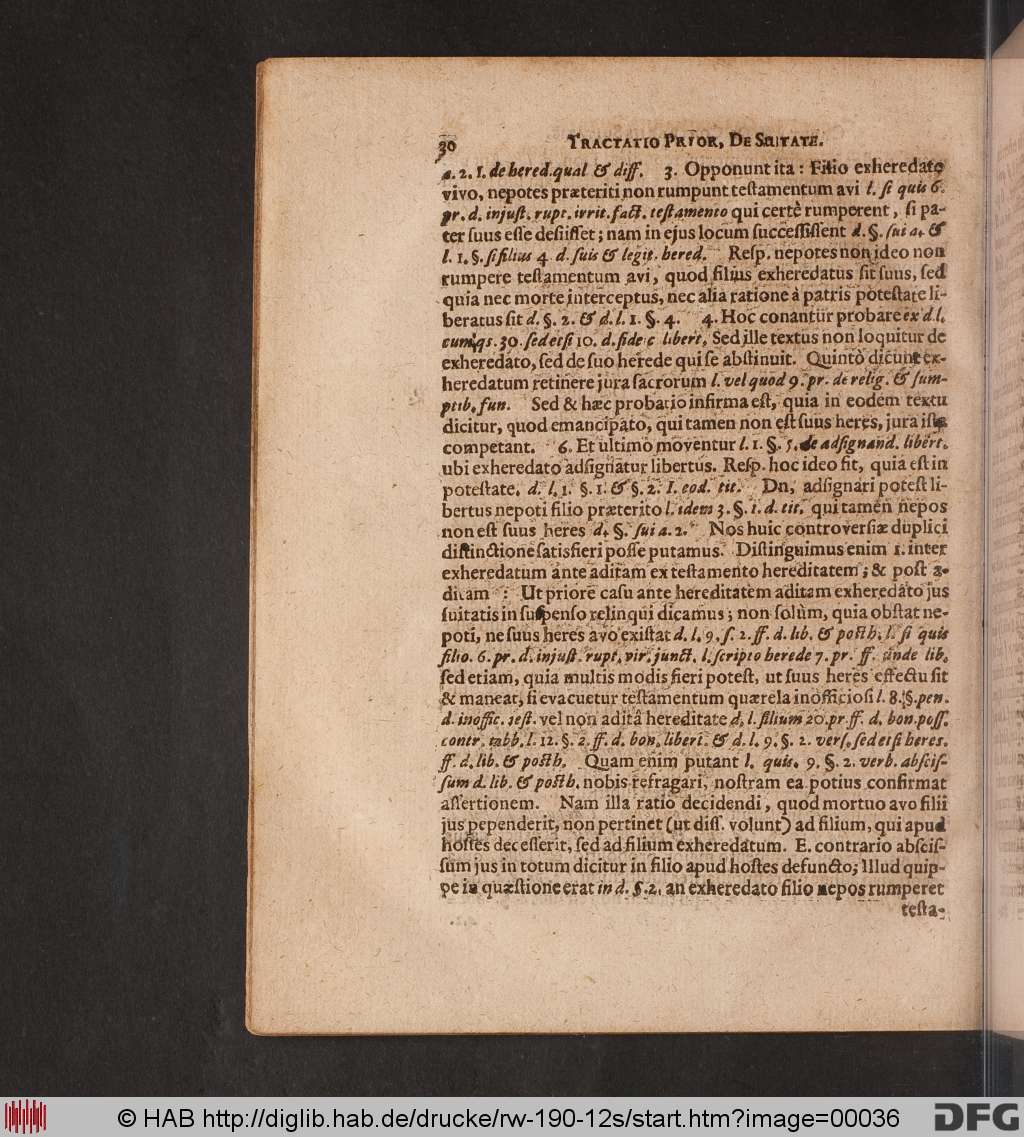 30 TRACTATIO PRIOR, DE SUITATE.
a. 2. I. de hered. qual & diff. 3. Opponunt ita: Filio exheredato
vivo, nepotes præteriti non rumpunt teſtamentum avi l. ſi quis 6.
pr. d. injuſt. rupt. irrit. fact. teſtamento qui certè rumperent, ſi pa-
ter ſuus eſſe deſiiſſet; nam in ejus locum ſucceſſiſſent d. §. ſui a. &
l. 1. §. ſi filius 4 d. ſuis & legit. hered. Reſp. nepotes non ideo non
rumpere teſtamentum avi, quod filius exheredatus ſit ſuus, ſed
quia nec morte interceptus, nec alia ratione à patris poteſtate li-
beratus ſit d. §. 2. & d. l. 1. §. 4. 4. Hoc conantur probare ex d. l.
cum qs. 30. ſed etſi 10. d. fide c libert. Sed ille textus non loquitur de
exheredato, ſed de ſuo herede qui ſe abſtinuit. Quintò dicunt ex-
heredatum retinere jura ſacrorum l. vel quod 9. pr. de relig. & ſum-
ptib. fun. Sed & hæc probatio infirma eſt, quia in eodem textu
dicitur, quod emancipato, qui tamen non eſt ſuus heres, jura iſta
competant. 6. Et ultimò moventur l. 1. §. 5. de adſignand. libert.
ubi exheredato adſignatur libertus. Reſp. hoc ideo fit, quia eſt in
poteſtate. d. l. 1. §. 1. & §. 2. I. eod. tit. Dn. adſignari poteſt li-
bertus nepoti filio præterito l. idem 3. §. 1. d. tit. qui tamen nepos
non eſt ſuus heres d. §. ſui a. 2. Nos huic controverſiæ duplici
diſtinctione ſatisfieri poſſe putamus. Diſtinguimus enim 1. inter
exheredatum ante aditam ex teſtamento hereditatem; & poſt a-
ditam : Ut priore caſu ante hereditatem aditam exheredato jus
ſuitatis in ſuſpenſo relinqui dicamus; non ſolùm, quia obſtat ne-
poti, ne ſuus heres avo exiſtat d. l. 9. ſ. 2. ff. d. lib. & poſth. l. ſi quis
filio. 6. pr. d. injuſt. rupt. vir. junct. l. ſcripto herede 7. pr. ff. unde lib.
ſed etiam, quia multis modis fieri poteſt, ut ſuus heres effectu ſit
& maneat, ſi evacuetur teſtamentum quærela inofficioſi l. 8. §. pen.
d. inoffic. teſt. vel non aditâ hereditate d. l. filium 20. pr. ff. d. bon. poſſ.
contr. tabb. l. 12. §. 2. ff. d. bon. liberi. & d. l. 9. §. 2. verſ. ſed etſi heres.
ff. d. lib. & poſth. Quam enim putant l. quis. 9. §. 2. verb. abſciſ-
ſum d. lib. & poſth. nobis refragari, noſtram ea potius confirmat
aſſertionem. Nam illa ratio decidendi, quod mortuo avo filii
jus pependerit, non pertinet (ut diſſ. volunt) ad filium, qui apud
hoſtes deceſſerit, ſed ad filium exheredatum. E. contrario abſciſ-
ſum jus in totum dicitur in filio apud hoſtes defuncto; Illud quip-
pe in quæſtione erat in d. §. 2. an exheredato filio nepos rumperet
teſta-
© HAB http://diglib.hab.de/drucke/rw-190-12s/start.htm?image=00036
DFG